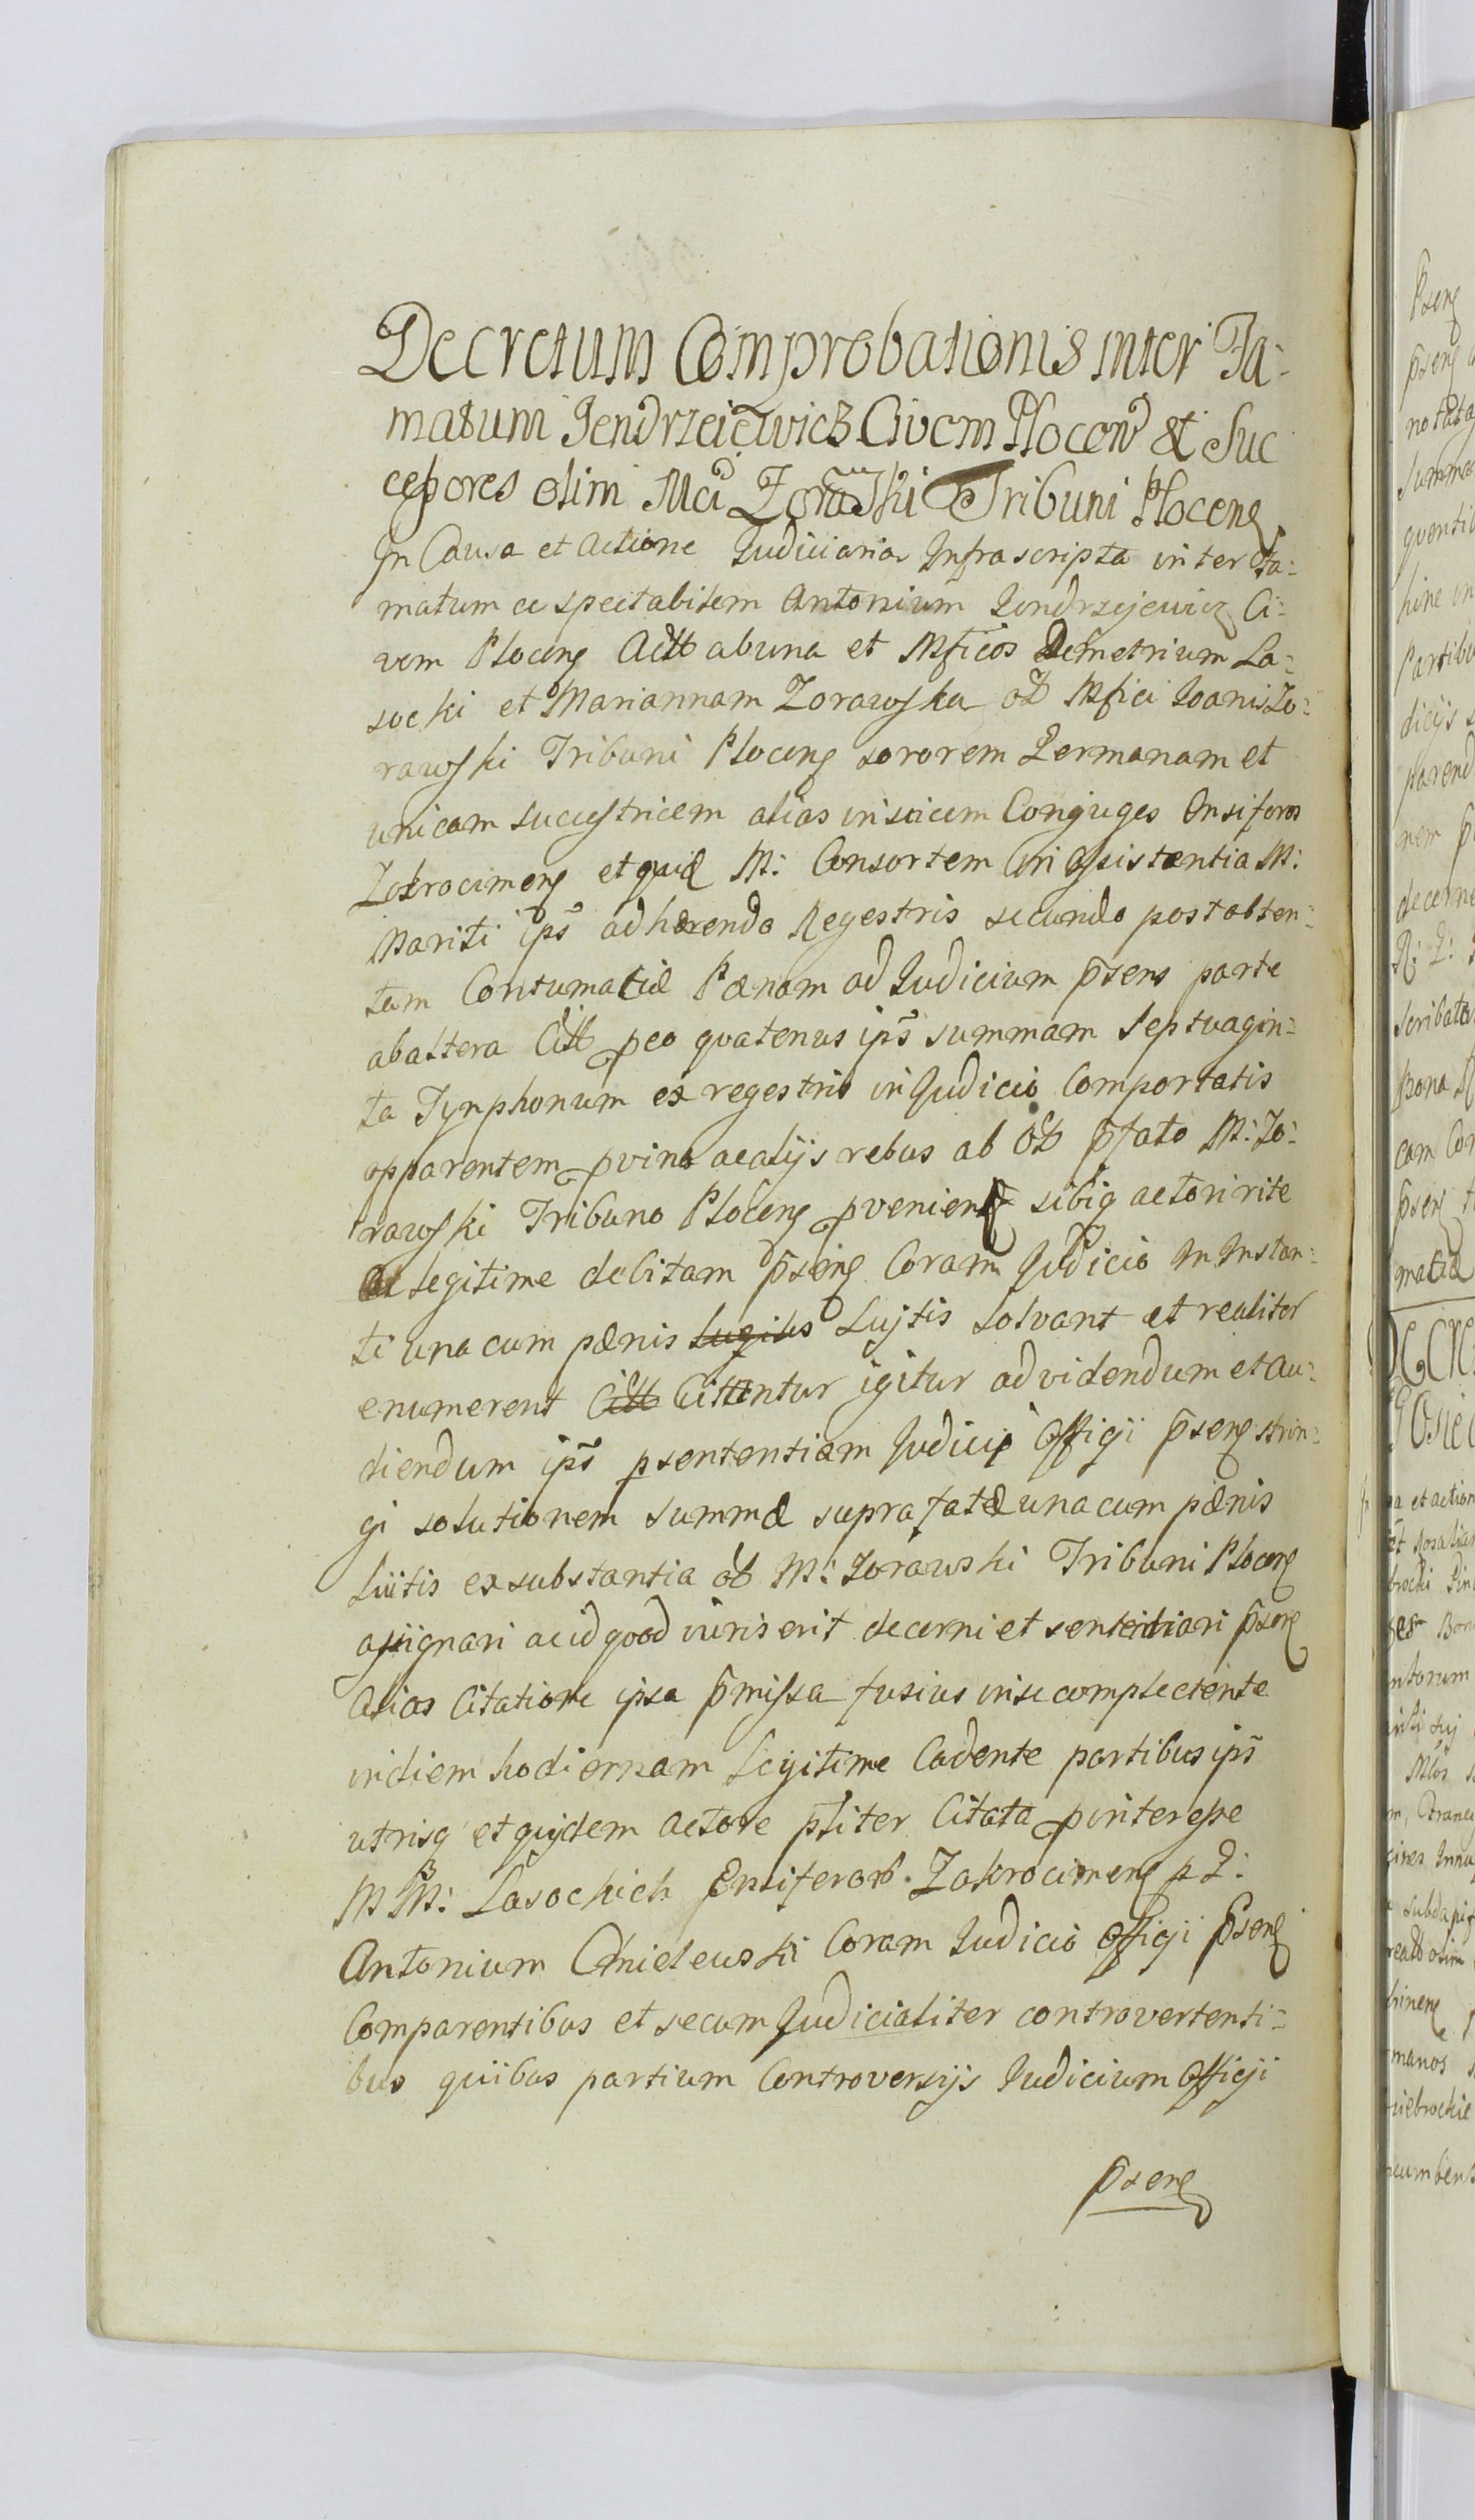 Decretum Comprobationis inter Fa-
matum Jendrzeiewicz Civem Plocen et Suc
cessores olim Mci Zorawski Tribuni Plocens
In Causa et actione Judiciaria Infrascripta inter Fa-
matum ac spectabilem Antonium Jendrzejewicz Ci-
vem Plocens Actt abuna et Mficos Demetrium La-
socki et Mariannam Zorawska ol Mfici Joanis Zo-
rawski Tribuni Plocens sororem Germanam et
unicam sucestricem alias invicem Conjuges Ensiferos
Zakrocimens et quid M: Consortem in assistentia M:
Mariti ips adhærendo Regestris secundo post obten-
tam Contumaciæ Pænam ad Judicium p̄sens parte
abaltera Citt peo quatenus ips̄ summam septuagin-
ta Tynphonum ex regestris in Judicio Comportatis
apparentem p vino ac alijs rebus ab ol p̄fato M: Zo-
rawski Tribuno Plocens pvenien sibiq actori rite
et legitime debitam p̄sens Coram Judicio in Instan-
ti una cum pænis lugitis Lujtis solvant et realiter
enumerent Citt Cittantur igitur ad videndum et au-
diendum ips̄ p sententiam Judicij Officij p̄sens strin-
gi solutionem summæ suprafatæ una cum pænis
Luitis ex substantia ol M: Zorawski Tribuni Plocens
assignari ac id quod iuris erit decerni et sententiari p̄sens
alias Citatione ipsa p̄missa fusius in se complectente
in diem hodiernam Legitime Cadente partibus ips̄
utrisq et quidem actore p̄liter Citata p interesse
M M: Lasockich Ensiferor Zakrocimens p G:
Antonium Chielewski Coram Judicio Officij p̄sens
Comparentibus et secum Judicialiter controvertenti-
bus quibus partium Controversijs Judicium Officij
p̄sens